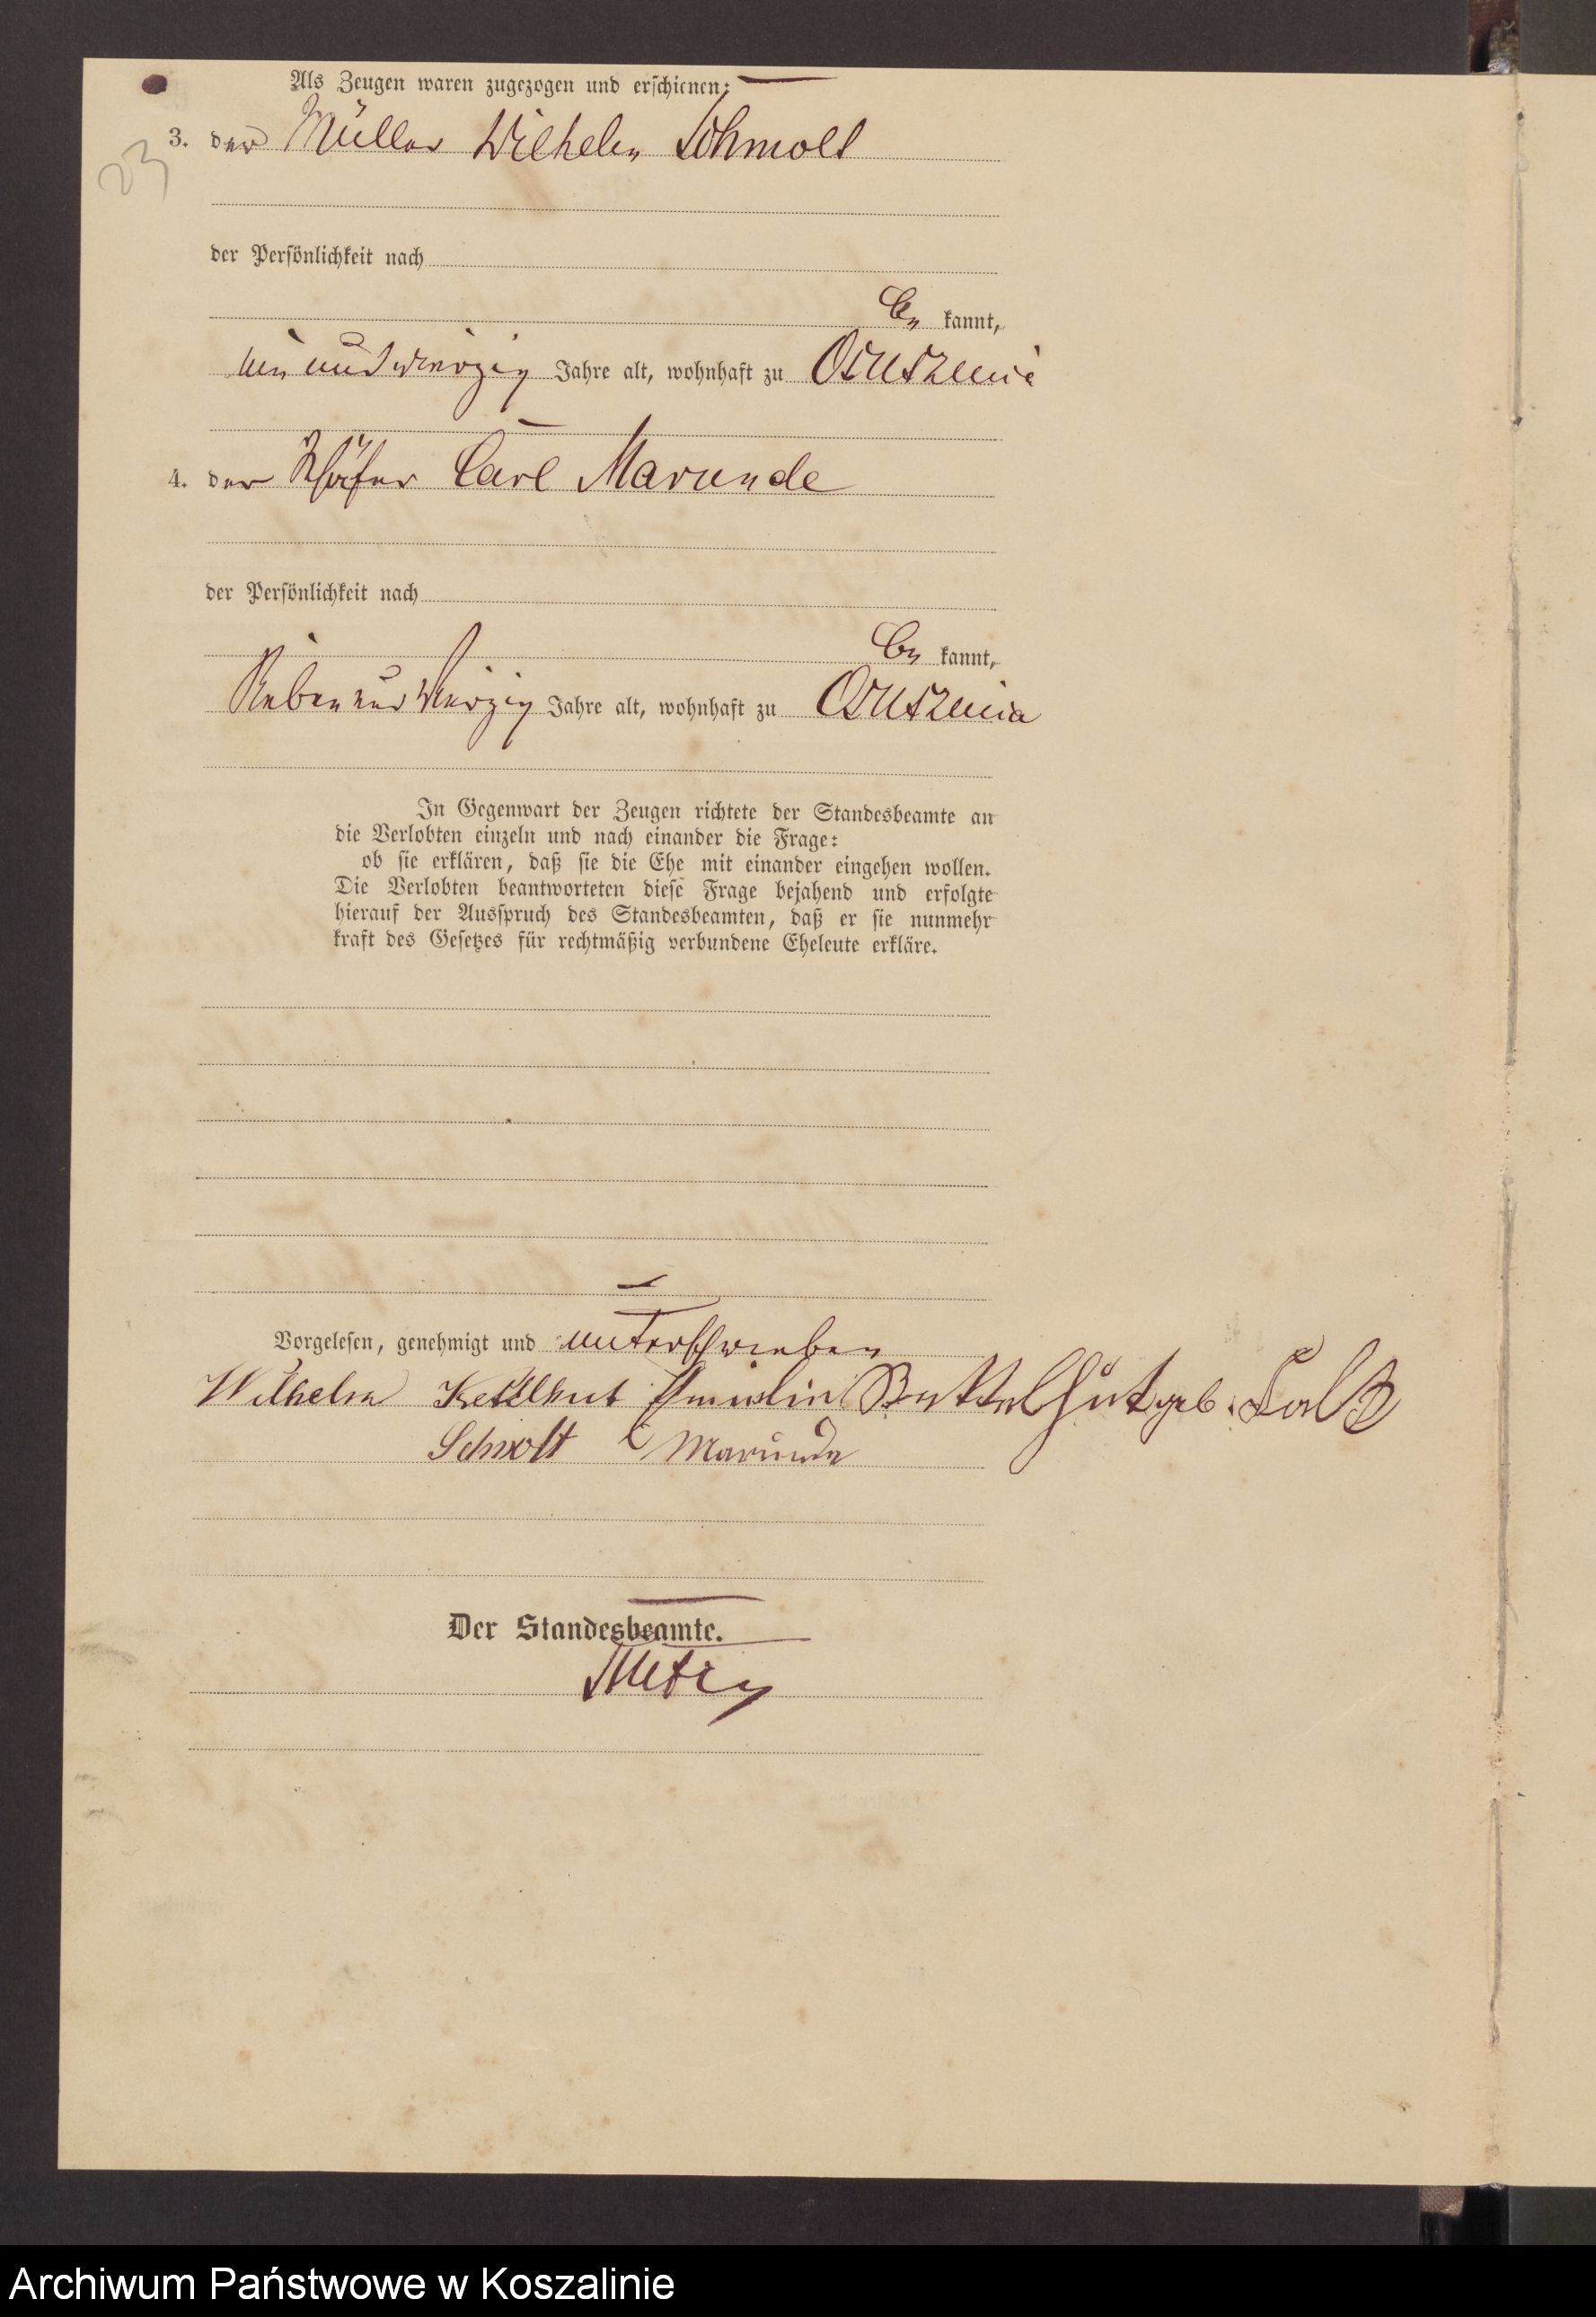 23
Als Zeugen waren zugezogen und erschienen:
3. der Müller Wilhelm Schmolt
der Persönlichkeit nach
be kannt,
ein und vierzig Jahre alt, wohnhaft zu
4. der Schäfer Carl Marunde
der Persönlichkeit nach
be kannt,
Sieben und vierzig Jahre alt, wohnhaft zu
In Gegenwart der Zeugen richtete der Standesbeamte an
die Verlobten einzeln und nach einander die Frage:
ob sie erklären, daß sie die Ehe mit einander eingehen wollen.
Die Verlobten beantworteten diese Frage bejahend und erfolgte
hierauf der Ausspruch des Standesbeamten, daß er sie nunmehr
kraft des Gesetzes für rechtmäßig verbundene Eheleute erkläre.
Vorgelesen, genehmigt und unterschrieben
Wilhelm Kettelhut Kettelhut geb.
Schmolt C Marunde
Der Standesbeamte.
Archiwum Państwowe w Koszalinie